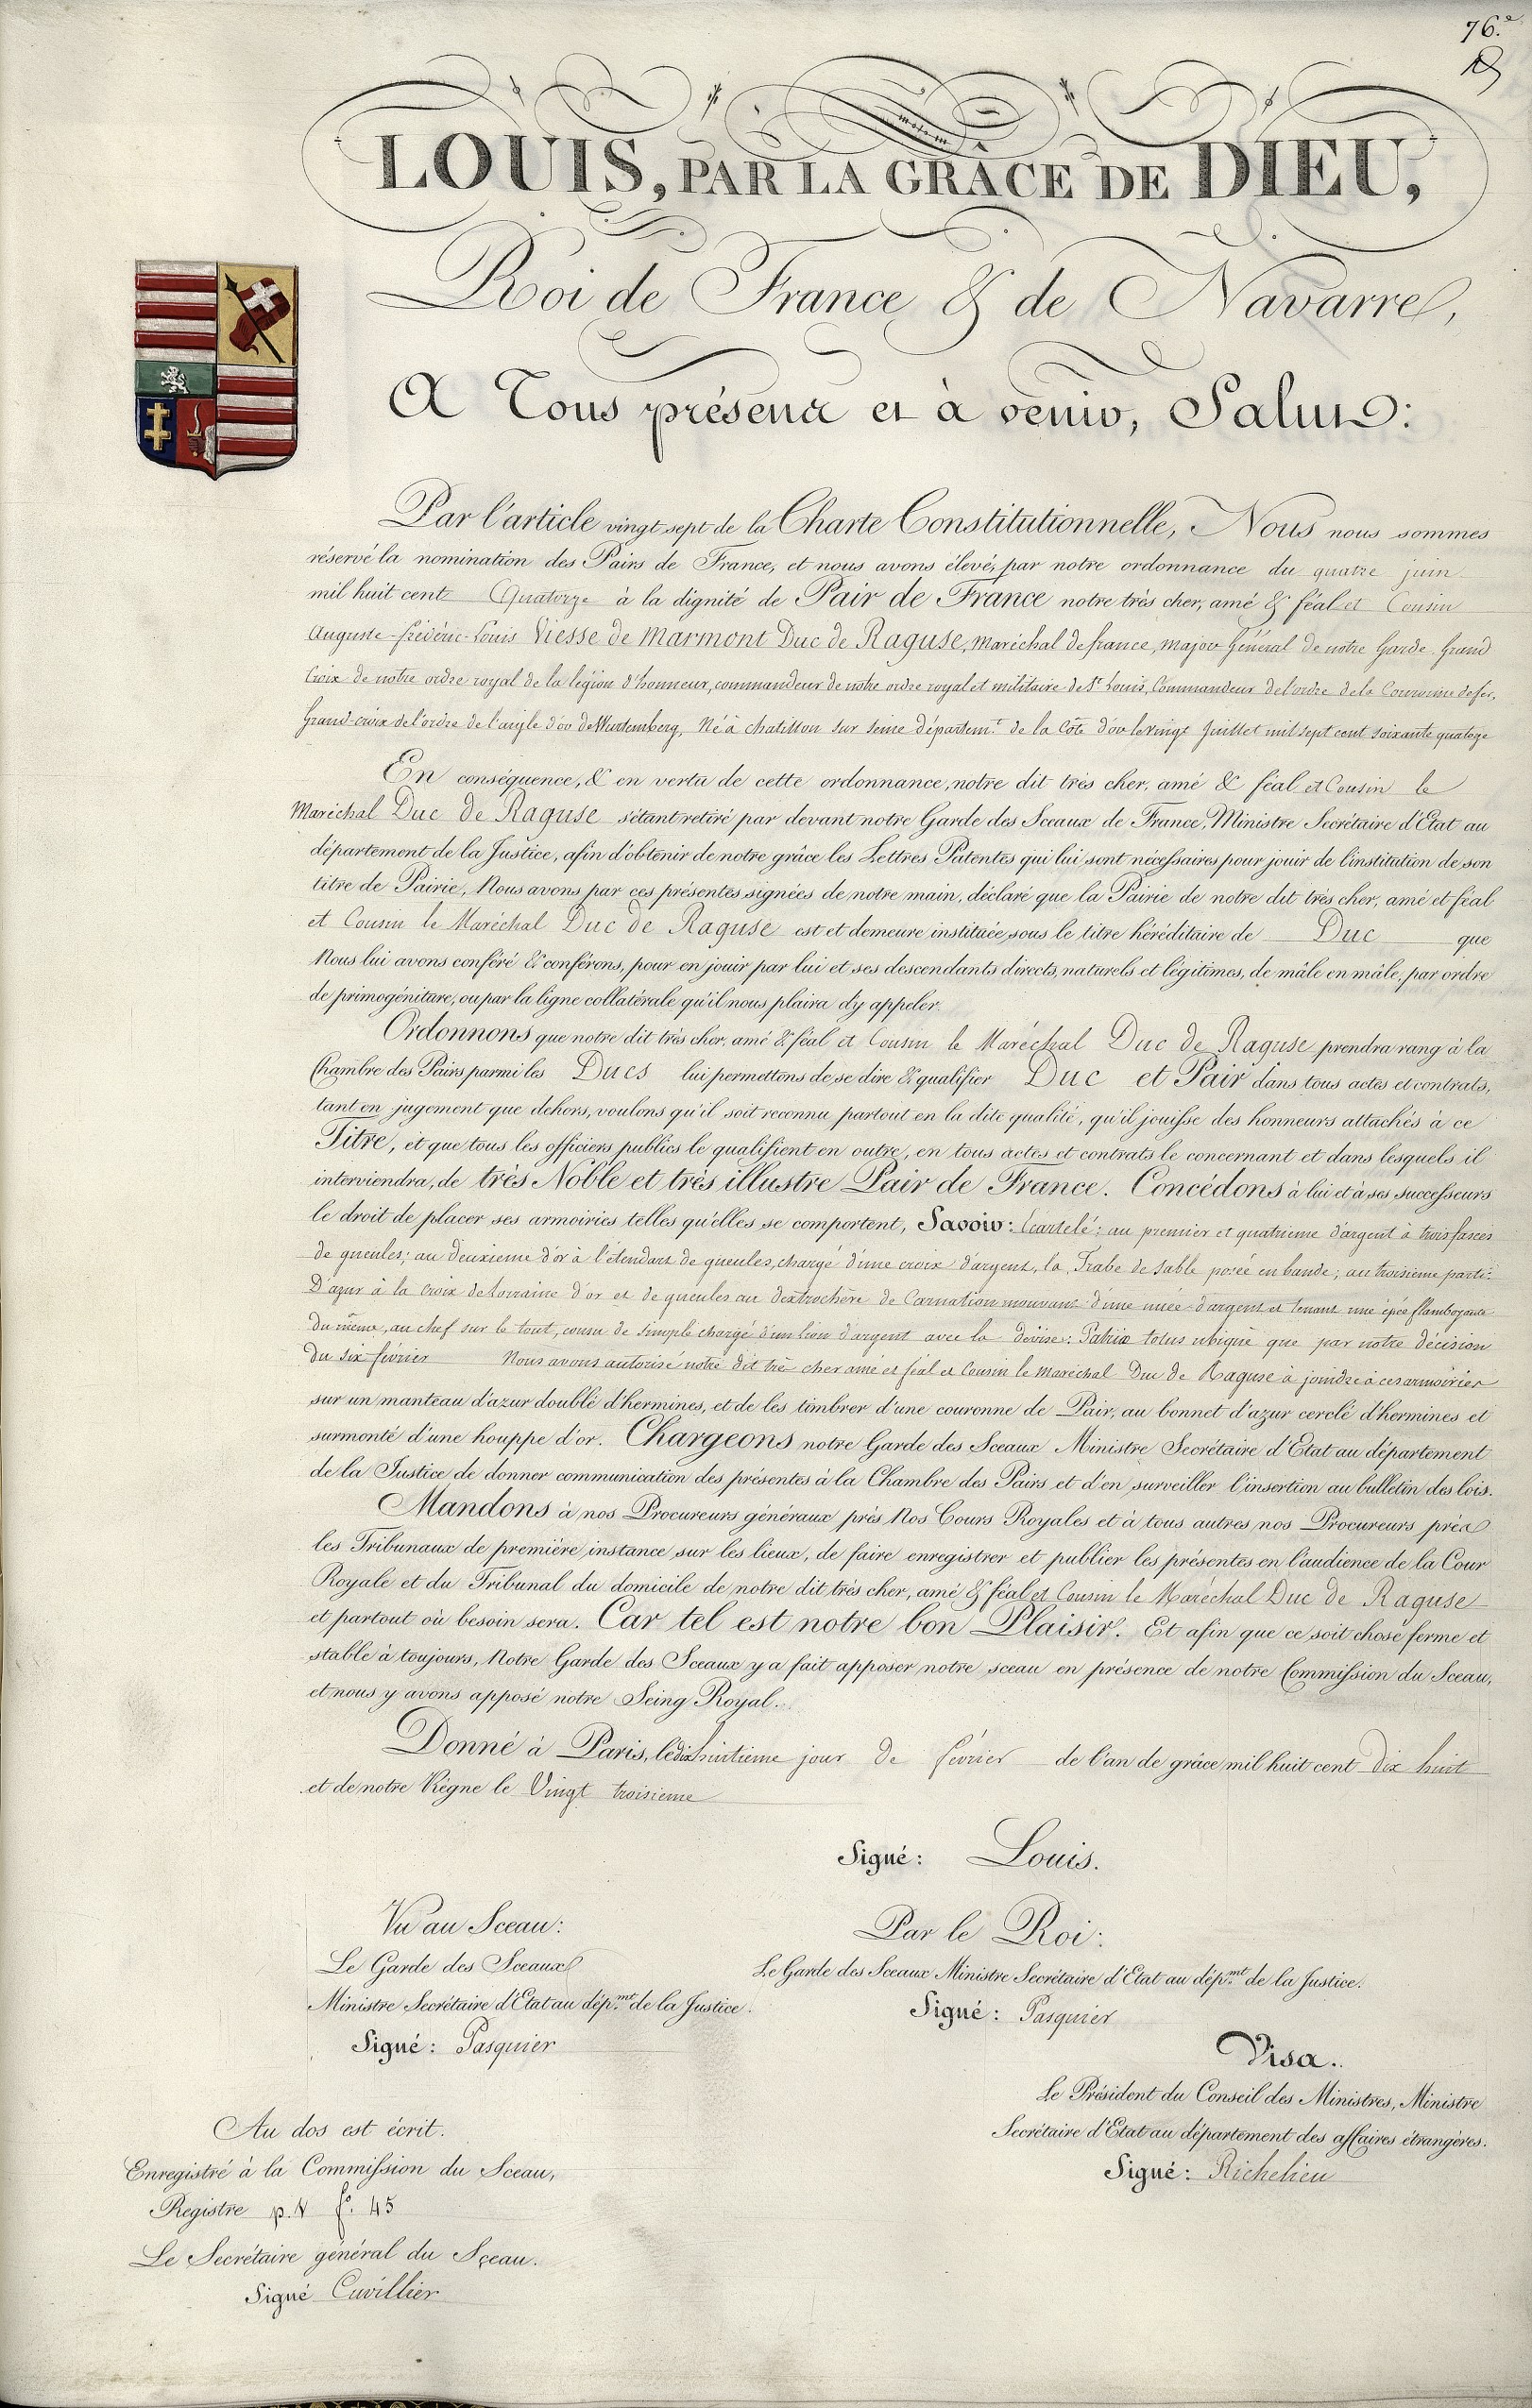 76.e
LOUIS, PAR LA GRÂCE DE DIEU,
Roi de France & de Navarre,
A Tous présens et à venir, Salut:
Par l'article vingt sept de la Charte Constitutionnelle, Nous nous sommes
réservé la nomination des Pairs de France, et nous avons élevé, par notre ordonnance du quatre juin
mil huit cent Quatorze à la dignité de Pair de France notre très cher, amé & féal et Cousin
Auguste-frédéric-Louis Viesse de Marmont Duc de Raguse, maréchal de france, major Général de notre Garde. Grand
Croix de notre ordre royal de la légion d'honneur, commandeur de notre ordre royal et militaire de St Louis, Commandeur de l'ordre de la Couronne de fer,
Grand-croix de l'ordre de l'aigle d'or de Wurtemberg, Né à chatillon sur seine départemt. de la Côte d'or le vingt Juillet mil sept cent soixante quatorze
En conséquence, & en vertu de cette ordonnance, notre dit très cher, amé & féal et Cousin le
Maréchal Duc de Raguse s'étant retiré par devant notre Garde des Sceaux de France, Ministre Secrétaire d'Etat au
département de la Justice, afin d'obtenir de notre grâce les Lettres Patentes qui lui sont nécessaires pour jouir de l'institution de son
titre de Pairie, Nous avons par ces présentes signées de notre main, déclaré que la Pairie de notre dit très cher, amé et féal
et Cousin le Maréchal Duc de Raguse est et demeure instituée sous le titre héréditaire de Duc que
Nous lui avons conféré & conférons, pour en jouir par lui et ses descendants directs, naturels et légitimes, de mâle en mâle, par ordre
de primogéniture, ou par la ligne collatérale qu'il nous plaira d'y appeler.
Ordonnons que notre dit très cher, amé & féal et Cousin le Maréchal Duc de Raguse prendra rang à la
Chambre des Pairs parmi les Ducs lui permettons de se dire & qualifier Duc et Pair dans tous actes et contrats,
tant en jugement que dehors, voulons qu'il soit reconnu partout en la dite qualité, qu'il jouisse des honneurs attachés à ce
Titre, et que tous les officiers publics le qualifient en outre, en tous actes et contrats le concernant et dans lesquels il
interviendra, de très Noble et très illustre Pair de France. Concédons à lui et à ses successeurs
le droit de placer ses armoiries telles qu'elles se comportent, Savoir: Ecartelé: au premier et quatrieme d'argent à trois fasces
de gueules; au deuxieme d'or à l'étendart de gueules, chargé d'une croix d'argent, la Trabe de Sable posée en bande; au troisieme parti:
D'azur à la croix de Lorraine d'or et de gueules au dextrochère de Carnation mouvant d'une nuée d'argent et tenant une épée flamboyante
du même, au chef sur le tout, cousu de sinople chargé d'un lion d'argent avec la devise: Patriæ totus ubique que par notre décision
du six février Nous avons autorisé notre dit très cher amé et féal et Cousin le Maréchal Duc de Raguse à joindre à ces armoiries
sur un manteau d'azur doublé d'hermines, et de les timbrer d'une couronne de Pair, au bonnet d'azur cerclé d'hermines et
surmonté d'une houppe d'or. Chargeons notre Garde des Sceaux Ministre Secrétaire d'Etat au département
de la Justice de donner communication des présentes à la Chambre des Pairs et d'en surveiller l'insertion au bulletin des lois.
Mandons à nos Procureurs généraux près Nos Cours Royales et à tous autres nos Procureurs près
les Tribunaux de première instance sur les lieux, de faire enregistrer et publier les présentes en l'audience de la Cour
Royale et du Tribunal du domicile de notre dit très cher, amé & féal et Cousin le Maréchal Duc de Raguse
et partout où besoin sera. Car tel est notre bon Plaisir. Et afin que ce soit chose ferme et
stable à toujours, Notre Garde des Sceaux y a fait apposer notre sceau en présence de notre Commission du Sceau,
et nous y avons apposé notre Seing Royal.
Donné à Paris, le dix huitieme jour de février de l'an de grâce mil huit cent dix huit
et de notre Règne le Vingt troisieme
Signé: Louis.
Vu au Sceau:
Le Garde des Sceaux
Ministre Secrétaire d'Etat au dép.mt de la Justice.
Signé: Pasquier
Par le Roi:
Le Garde des Sceaux Ministre Secrétaire d'Etat au dép.mt de la Justice.
Signé: Pasquier
Visa.
Le Président du Conseil des Ministres, Ministre
Secrétaire d'Etat au département des affaires étrangères.
Signé: Richelieu
Au dos est écrit.
Enregistré à la Commission du Sceau,
Registre p. V fo. 45
Le Secrétaire général du Sceau.
Signé Cuvillier